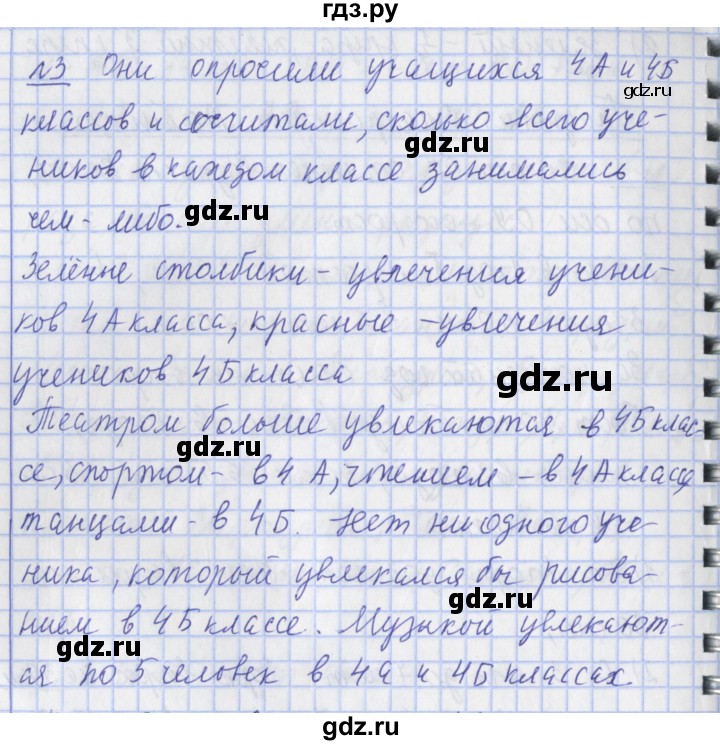 гдз.ру
№3 Они опросили учащихся 4А и 4Б
gdz.ru
классов и сосчитали, сколько всего уче-
gdz.ru
ников в каждом классе занимались
чем-либо.
gdz.ru
Зелёные столбики - увлечения учени-
ков 4А класса, красные - увлечения
учеников 4Б класса
gdz.ru
Театром больше увлекаются в 4Б клас-
gdz.ru
се, спортом - в 4А, чтением - в 4А классе
танцами - в 4Б. Нет ни одного уче-
ника, который увлекался бы рисова-
gdz.ru
нием в 4Б классе. Музыкой увлекают-
gdz.ru
ся по 5 человек в 4а и 4Б классах.
gdz.ru